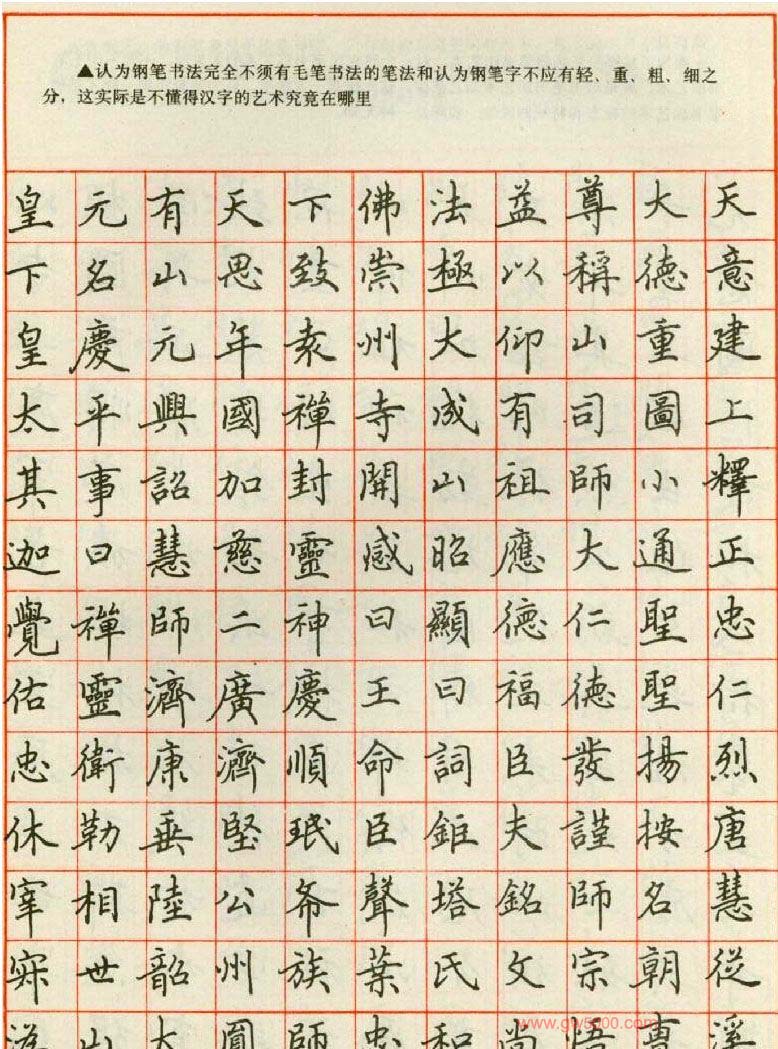 ▲认为钢笔书法完全不须有毛笔书法的笔法和认为钢笔字不应有轻、重、粗、细之
分，这实际是不懂得汉字的艺术究竟在哪里
皇元有天下佛法益尊大天
下名山思致崇極以稱德意
皇慶元年袁州大仰山重建
太平興國禅寺成有司圖上
其事詔加封開山祖師小釋
迦曰慧慈靈感昭應大通正
覺禅師二神曰顯德仁聖忠
佑靈濟廣慶王曰福德聖仁
忠衛康濟順命詞臣發揚烈
休勒垂堅珉臣鉅夫謹按唐
宰相陸公希聲塔銘師名慧
寂世韶州族葉氏文宗朝從
溈山大圓師忠和尚悟專溪
www.gw5000.com